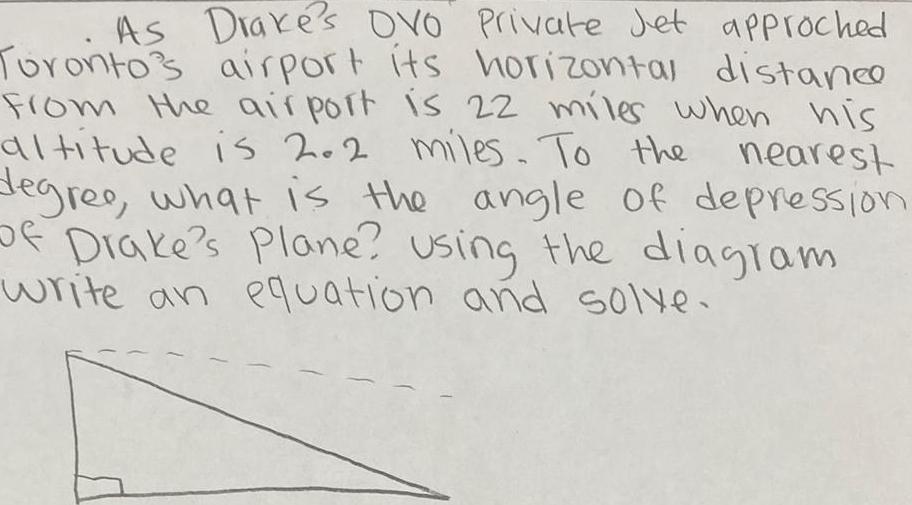 . As Drake's OVO Private Jet approched
Toronto's airport its horizontal distance
From the airport is 22 miles when his
altitude is 2.2 miles. To the nearest
degree, what is the angle of depression
of Drake's Plane? using the diagram
write an equation and solve.